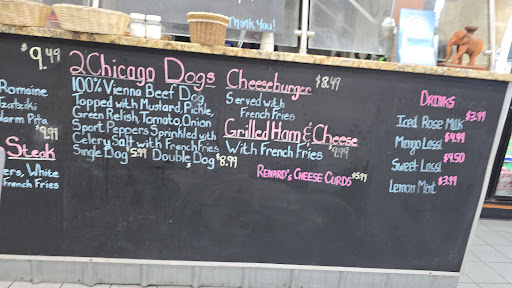 Thank You!
$9.49
Romaine
Tzatziki
Warm Pita
$9.99
Steak
ers, White
French Fries
2 Chicago Dogs
100% Vienna Beef Dog
Topped with Mustard, Pickle,
Green Relish, Tomato, Onion
Sport Peppers Sprinkled with
Celery Salt with French Fries
Single Dog 5.99 Double Dog $8.99
Cheeseburger $8.49
Served with
French Fries
Grilled Ham & Cheese
With French Fries $9.99
Renard's Cheese Curds $5.99
Drinks
Iced Rose Milk $3.99
Mango Lassi $4.99
Sweet Lassi $4.50
Lemon Mint $3.99